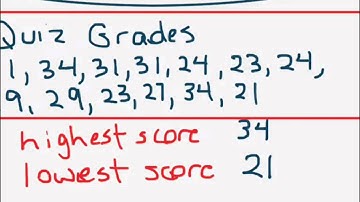 Quiz Grades
1, 34, 31, 31, 24, 23, 24,
9, 29, 23, 27, 34, 21
highest score 34
lowest score 21